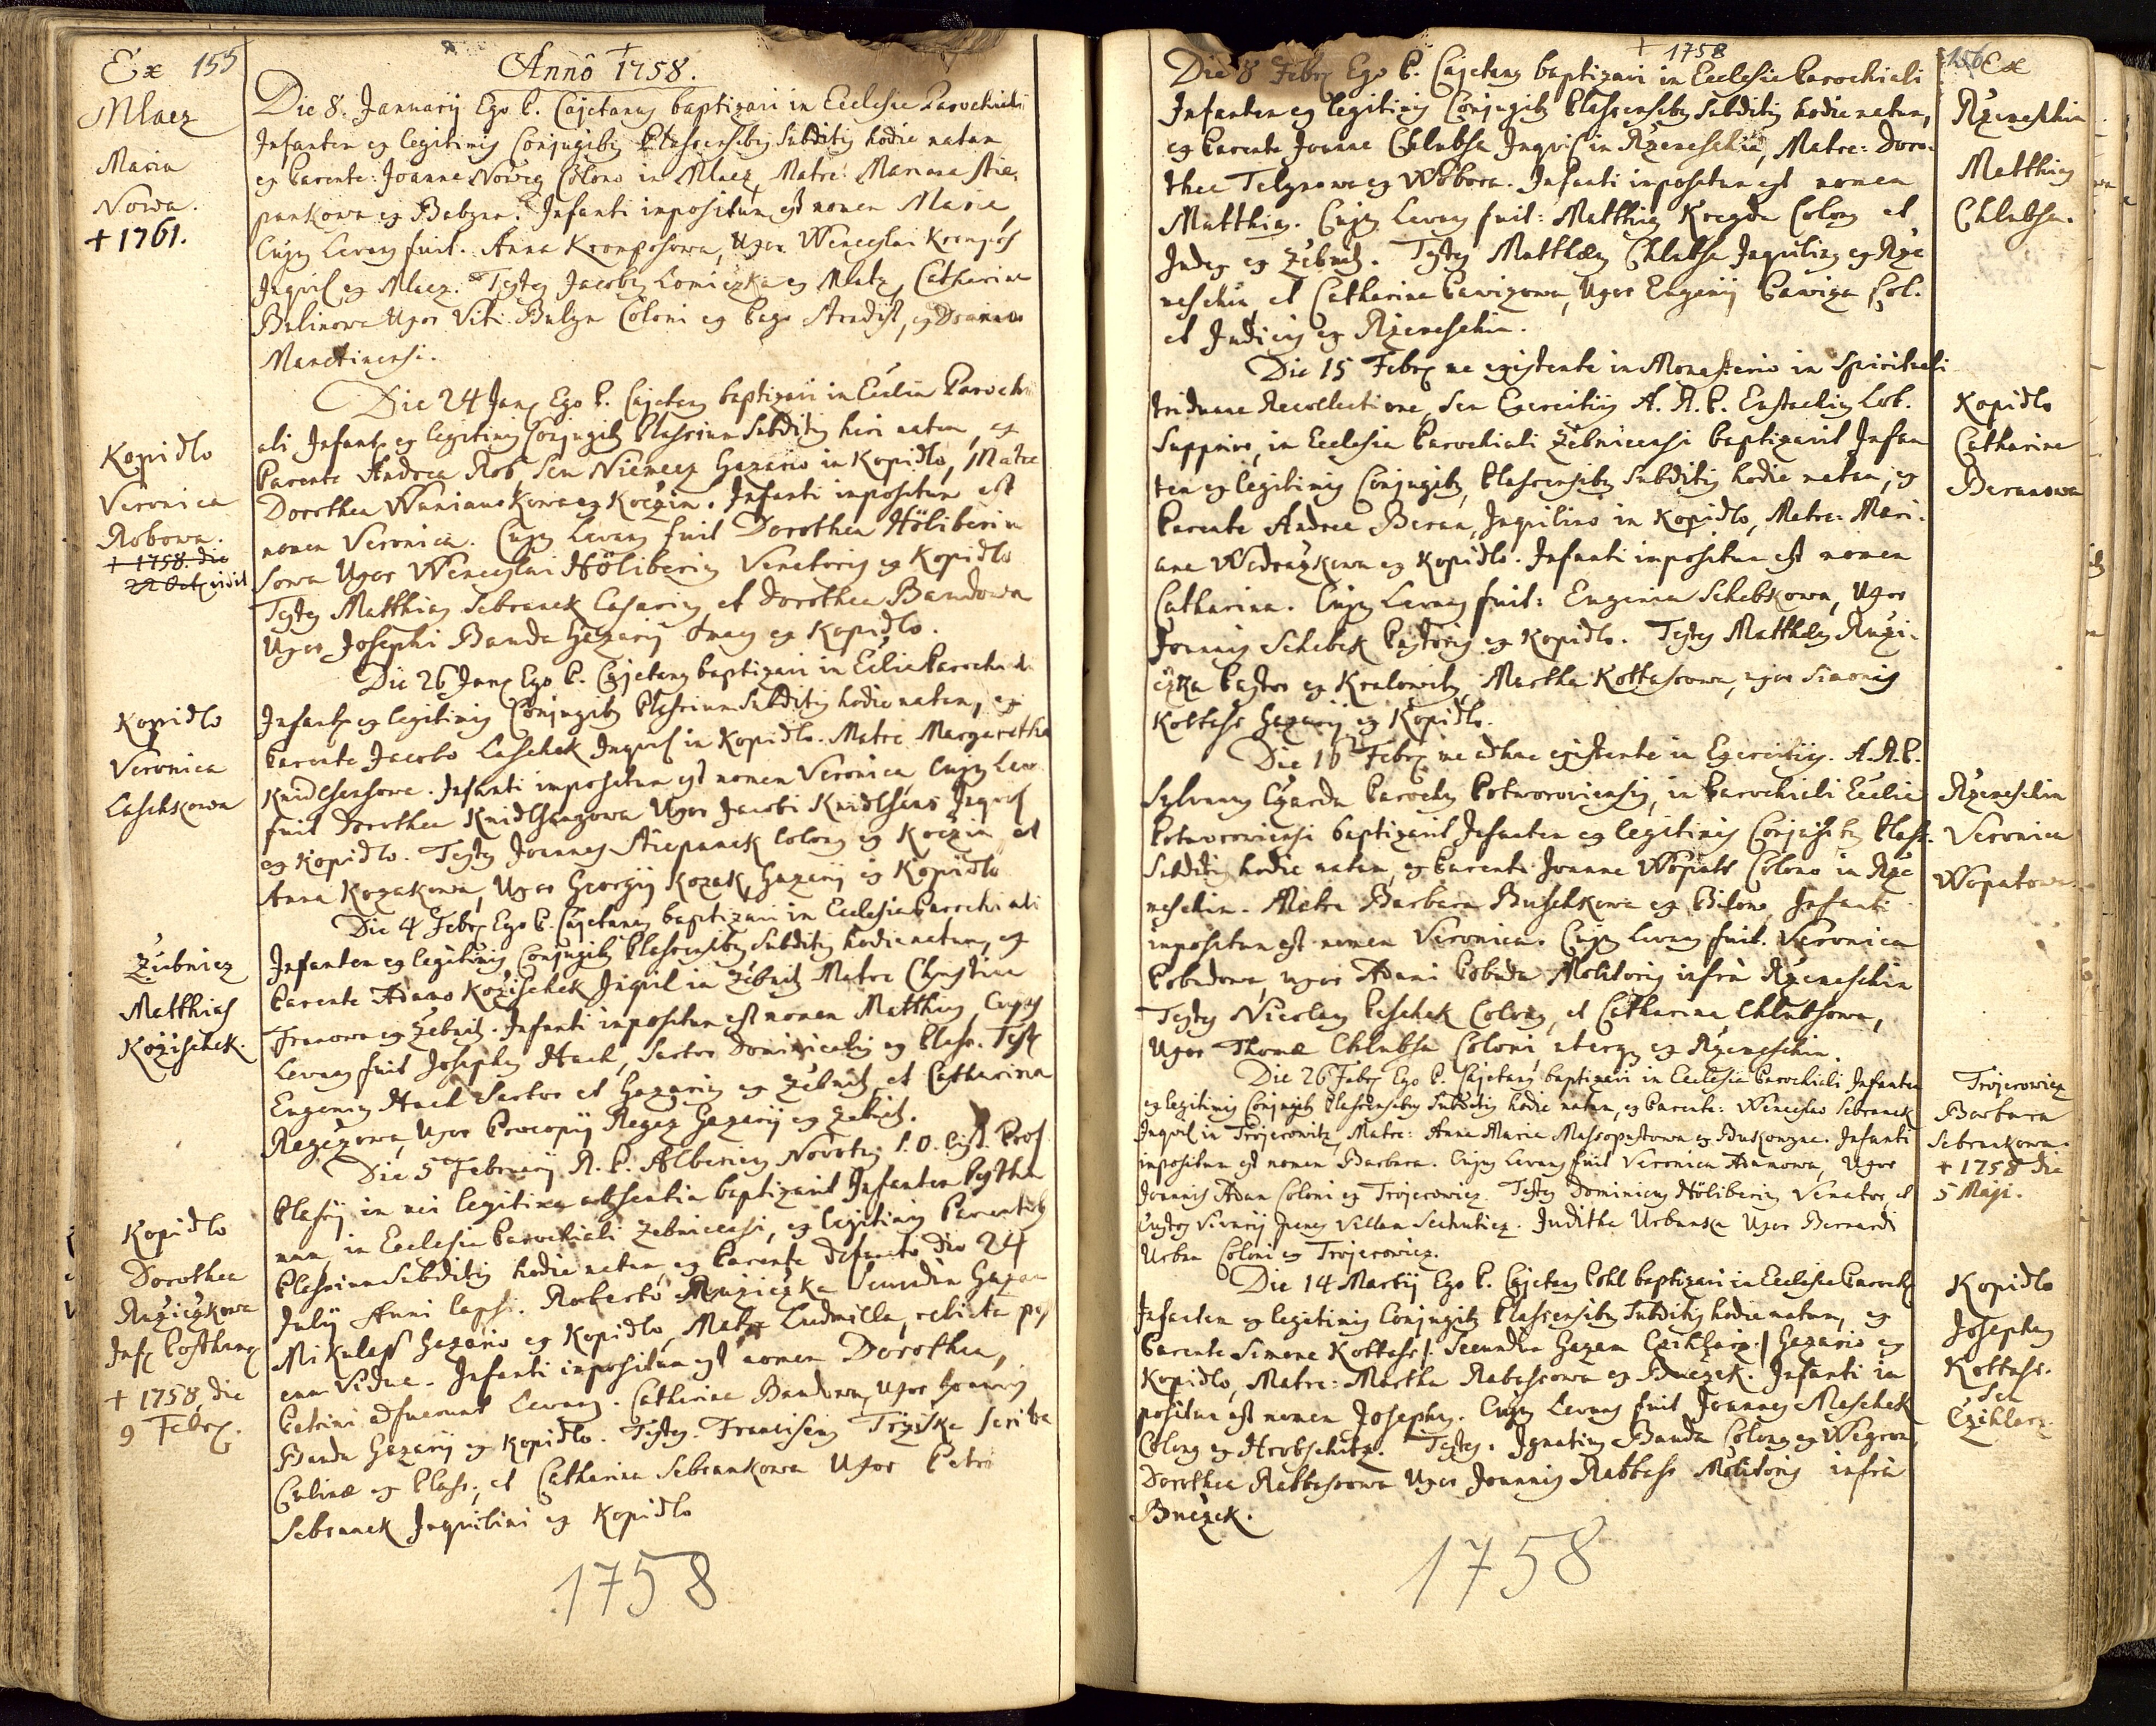 Ex 155
Mlacz
Maria
Nowa.
+ 1761.
Kopidlo
Veronica
Robowa.
+ 1758. die
22 Oct
Kopidlo
Veronica
Laschkowa
Žebnicz
Matthias
Kožischek.
Kopidlo
Dorothea
Ružiczkowa
Inf Posthum
+ 1758, die
9 Febr.
Anno 1758.
Die 8. Januarij Ego P. Cajetanus baptizavi in Ecclesia Parochiali
Infantem ex legitimis Conjugibus Plassensibus Subditis hodie natam
ex Parente: Joanne Nowey Colono in Mlacz, Matre: Mariana Stie-
pankowa ex Babzna. Infanti impositum est nomen Maria,
Cujus Levans fuit. Anna Kromposowa, Uxor Wenceslai Krompos
Inquil ex Mlacz. Testes Jacobus Lomiczka ex Mlatz, Catharina
Bulinowa Uxor Viti Coloni ex Pago Stradist, ex Dominio
Manetinensi.
Die 24 Jan Ego P. Cajetanus baptizavi in Ecclia Parochi
ali Infantem ex legitimis Conjugibus Plassium Subditis heri natam, ex
Parente Andrea Rob seu Niemecz Gazario in Kopidlo, Matre
Dorothea ex Koczin. Infanti impositum est
nomen Veronica. Cujus Levans fuit Dorothea Höliberin
sowa Uxor Wenceslai Höliberin Venatoris ex Kopidlo
Testes Matthias Sebranek Casarius et Dorothea Bandowa
Uxor Josephi Banda Gazarij ex Kopidlo.
Die 26 Jan Ego P. Cajetanus baptizavi in Ecclia Parochiali
Infantem ex legitimis Conjugibus Plassium Subditis hodie natam, ex
Parente Jacobo Laschek Inquil in Kopidlo. Matre Margaretha
Infanti impositum est nomen Veronica, Cujus Levans
fuit Dorothea Uxor Jacobi Inquil
ex Kopidlo. Testes Joannes Stiepanek Colonus ex Koczin et
Anna Kozakowa, Uxor Georgij Kozak, Gazarij ex Kopidlo
Die 4 Febr Ego P. Cajetanus baptizavi in Ecclesia Parochiali
Infantem ex legitimis Conjugibus Plassensibus Subditis hodie natum, ex
Parente Adamo Kožischek Inquil in Žebnitz Matre Christina
ex Žebnitz. Infanti impositum est nomen Matthias, Cujus
Levans fuit Josephus Hach, Sartor Dominicalis ex Plass. Testes
Eugenius Hach Sartor et Gazarius ex Žebnitz, et Catharina
Uxor Procopij Gazarij ex Žebnitz.
Die 5 Februarij R. P. Albericus Novotny S. O. Cist. Prof
Plassij in mei legitima absentia baptizavit Infantem Posthu
mam, in Ecclesia Parochiali Žebnicensi, ex legitimis Parentibus
Plassium Subditis hodie natam, ex Parente defuncto die 24
Julij Anni lapsi. Roberto Ružiczka secundum Gazam
Mikulass Gazario ex Kopidlo, Matre Ludmilla, relicta post
eum Vidua. Infanti impositum est nomen Dorothea,
Patrini adfuerunt Levans. Catharina Bandowa, Uxor Joannis
Banda Gazarij ex Kopidlo. Testes. Franciscus Scriba
Culinae ex Plass, et Catharina Sebrankowa Uxor Petri
Sebranek Inquilini ex Kopidlo
1758
+ 1758
Die 8 Febr Ego P. Cajetanus baptizavi in Ecclesia Parochiali
Infantem ex legitimis Conjugibus Plassensibus Subditis hodie natum,
ex Parente Joanne Chlubsa Inquil in Rzeneschin, Matre: Doro-
thea ex Wobora. Infanti impositum est nomen
Matthias. Cujus Levans fuit: Matthias Colonus et
Judex ex Žebnitz. Testes Matthaeus Chlubsa Inquilinus ex Rze
neschin, et Catharina Pawizowa, Uxor Eugenij Pawiza Col.
et Judicis ex Rzeneschin.
Die 15 Febr me existente in Monasterio in Spirituali
triduana Recollectione, seu Exercitijs A. R. P. Eustachius Lob.
Supprior, in Ecclesia Parochiali Žebnicensi baptizavit Infan
tem ex legitimis Conjugibus, Plassensibus Subditis hodie natam, ex
Parente Andrea Beran, Inquilino in Kopidlo, Matre: Mari-
ana ex Kopidlo. Infanti impositum est nomen
Catharina. Cujus Levans fuit: Eugenia Schebkowa, Uxor
Joannis Schebek Pastoris ex Kopidlo. Testes Matthaeus Ruži-
czka Pastor ex Kralowitz, Martha Kottasrowa, uxor Simonis
Kottass Gazarij ex Kopidlo.
Die 16 Febr me adhuc existente in Exercitijs. A. R. P.
Sylvanus Czarda Parochus Potworoviensis, in Parochiali Ecclia
Potworoviensi baptizavit Infantem ex legitimis Conjugibus Plass.
Subditis hodie natam, ex Parente Joanne Wopatt Colono in Rze
neschin. Matre Barbara Buschkowa ex Bilowa, Infanti
impositum est nomen Veronica. Cujus Levans fuit. Veronica
Pobudowa, uxor Adami Pobuda Molitoris infra Rzeneschin
Testes Nicolaus Peschek Colonus, et Catharina Chlubsowa,
Uxor Thomae Chlubsa Coloni, uterque ex Rzeneschin.
Die 26 Febr Ego P. Cajetanus baptizavi in Ecclesia Parochiali Infantem
ex legitimis Conjugibus Plassensibus Subditis hodie natam, ex Parente: Wenceslao Sebranek
Inquil in Trojerowitz, Matre: Anna Maria Massopustowa ex Infanti
impositum est nomen Barbara. Cujus Levans fuit Veronica Adamowa, Uxor
Joannis Adam Coloni ex Trojerowicz. Testes Dominicus Höliberin Venator et
Custos Vivarij penes Villam Sechuticz. Juditha Urbanka Uxor Bernardi
Urban Coloni ex Trojerowicz.
Die 14 Martij Ego P. Cajetan Pohl baptizavi in Ecclesia Paroch
Infantem ex legitimis Conjugibus Plassensibus Subditis hodie natum, ex
Parente Simone Kottass /: Secundum Gazam Czihlarz :/ Gazario ex
Kopidlo, Matre: Martha Rabassowa ex Buczek. Infanti im
positum est nomen Josephus. Cujus Levans fuit Joannes Meschek
Colonus ex Hrobschitz. Testes. Ignatius Banda Colonus ex
Dorothea Rabbasrowa Uxor Joannis Rabbass Molitoris infra
Buczek.
1758
156 Ex
Rzeneschin
Matthias
Chlubsa.
Kopidlo
Catharina
Beranowa
Rzeneschin
Veronica
Wopatowa.
Trojerowicz
Barbara
Sebrankowa.
+ 1758 die
5 Maji.
Kopidlo
Josephus
Kottass.
Seu
Czihlarz.